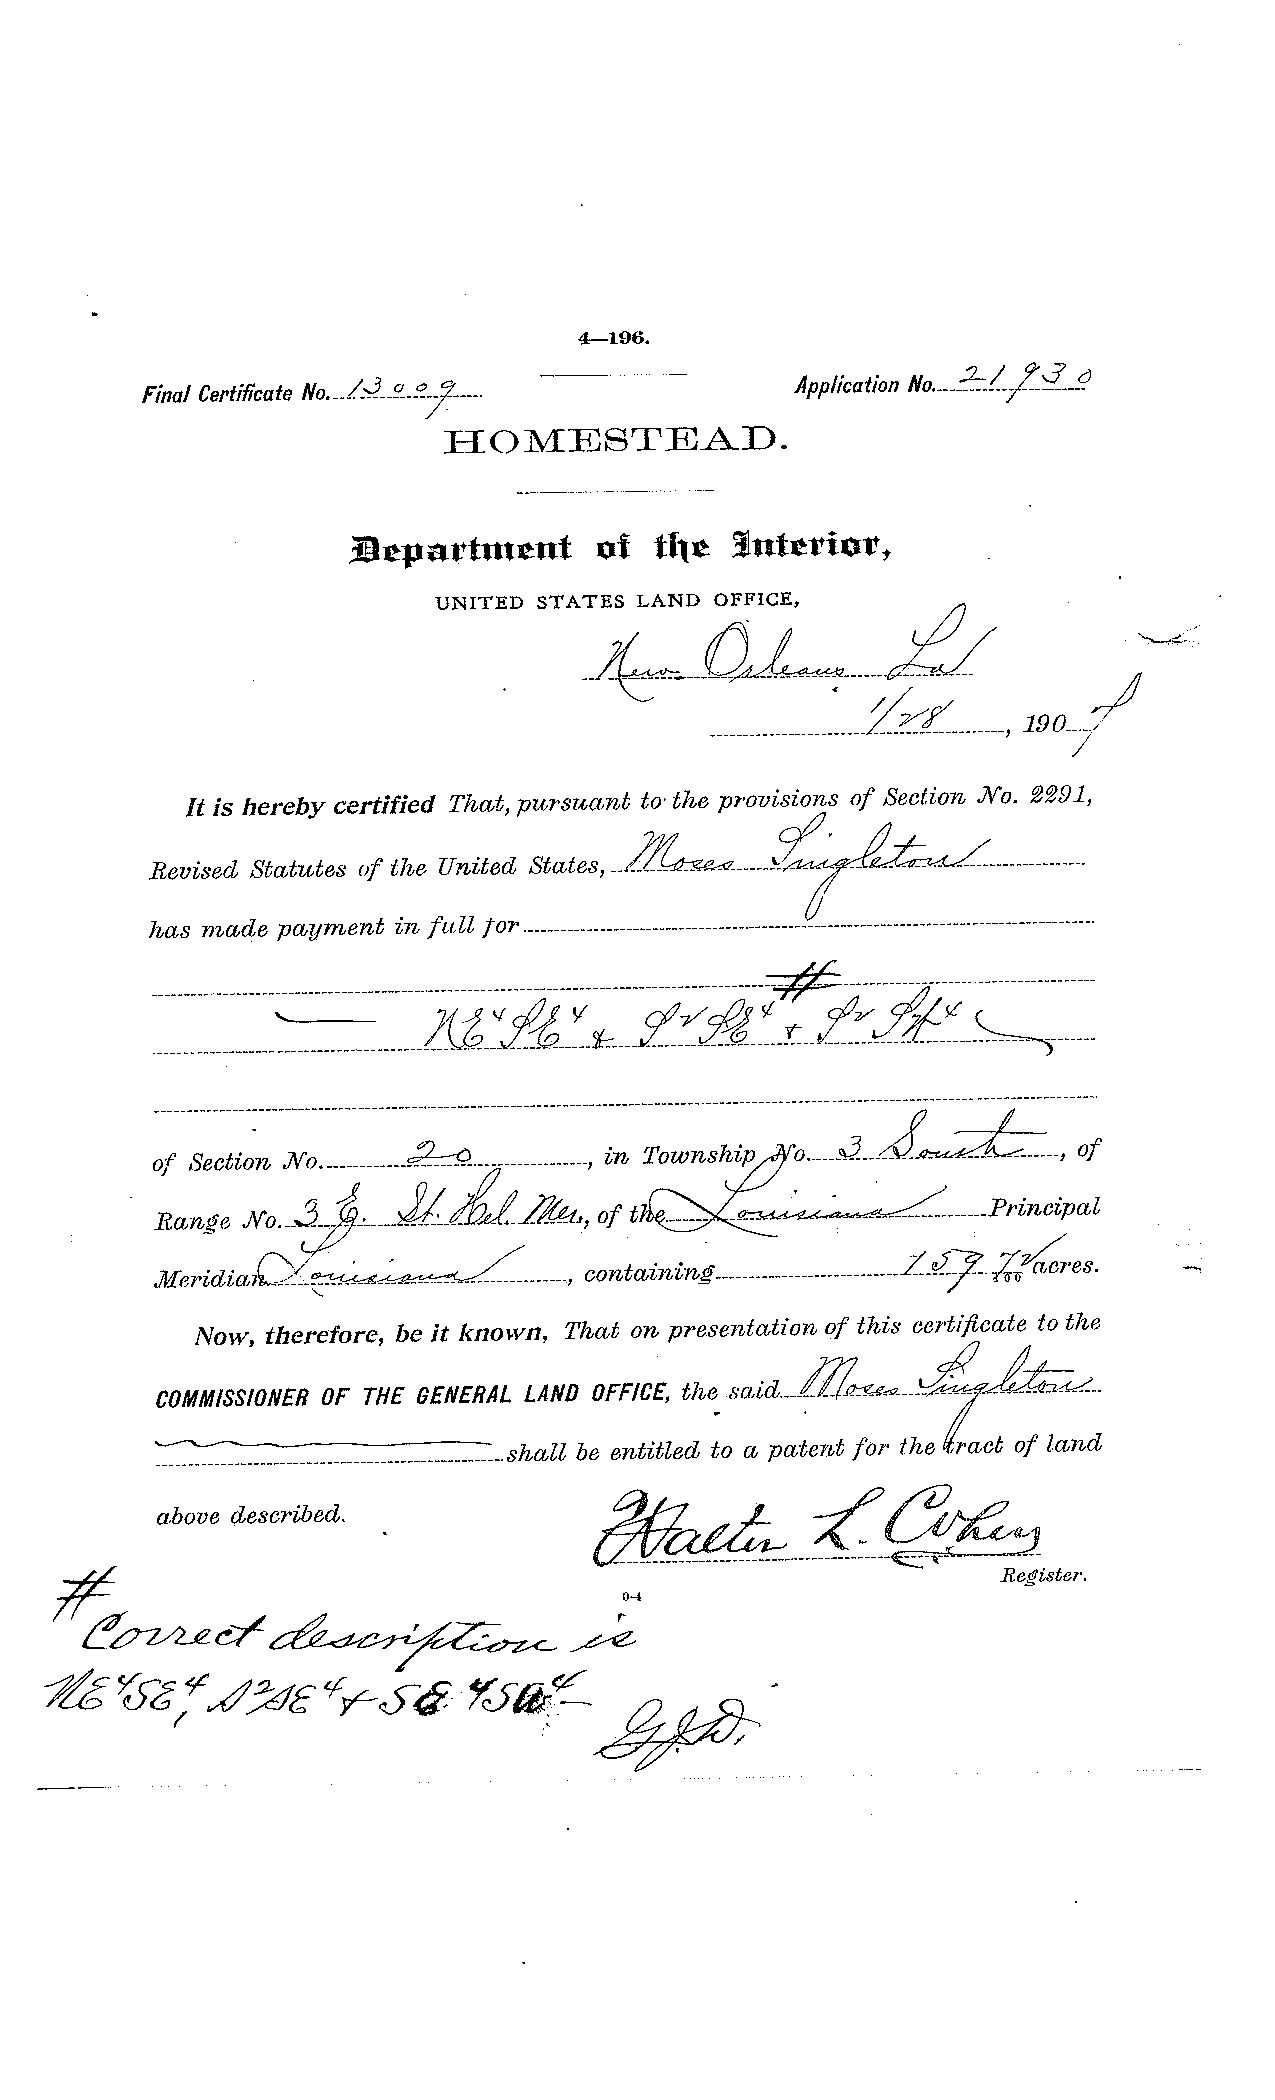 4—196.
Final Certificate No. 13009 Application No. 21930
HOMESTEAD.
Department of the Interior,
UNITED STATES LAND OFFICE,
New Orleans La
1/28, 1907
It is hereby certified That, pursuant to the provisions of Section No. 2291,
Revised Statutes of the United States, Moses Singleton
has made payment in full for
#
NE4 SE4 & S2 SE4 & S2 SW4
of Section No. 20, in Township No. 3 South, of
Range No. 3 E. St. Hel. Mer., of the Louisiana Principal
Meridian Louisiana, containing 159 72/100 acres.
Now, therefore, be it known, That on presentation of this certificate to the
COMMISSIONER OF THE GENERAL LAND OFFICE, the said Moses Singleton
shall be entitled to a patent for the tract of land
above described.
Walter L. Cohen
Register.
0-4
#
Correct description is
NE4SE4, S2SE4 & SE4SW4
G.J.D.